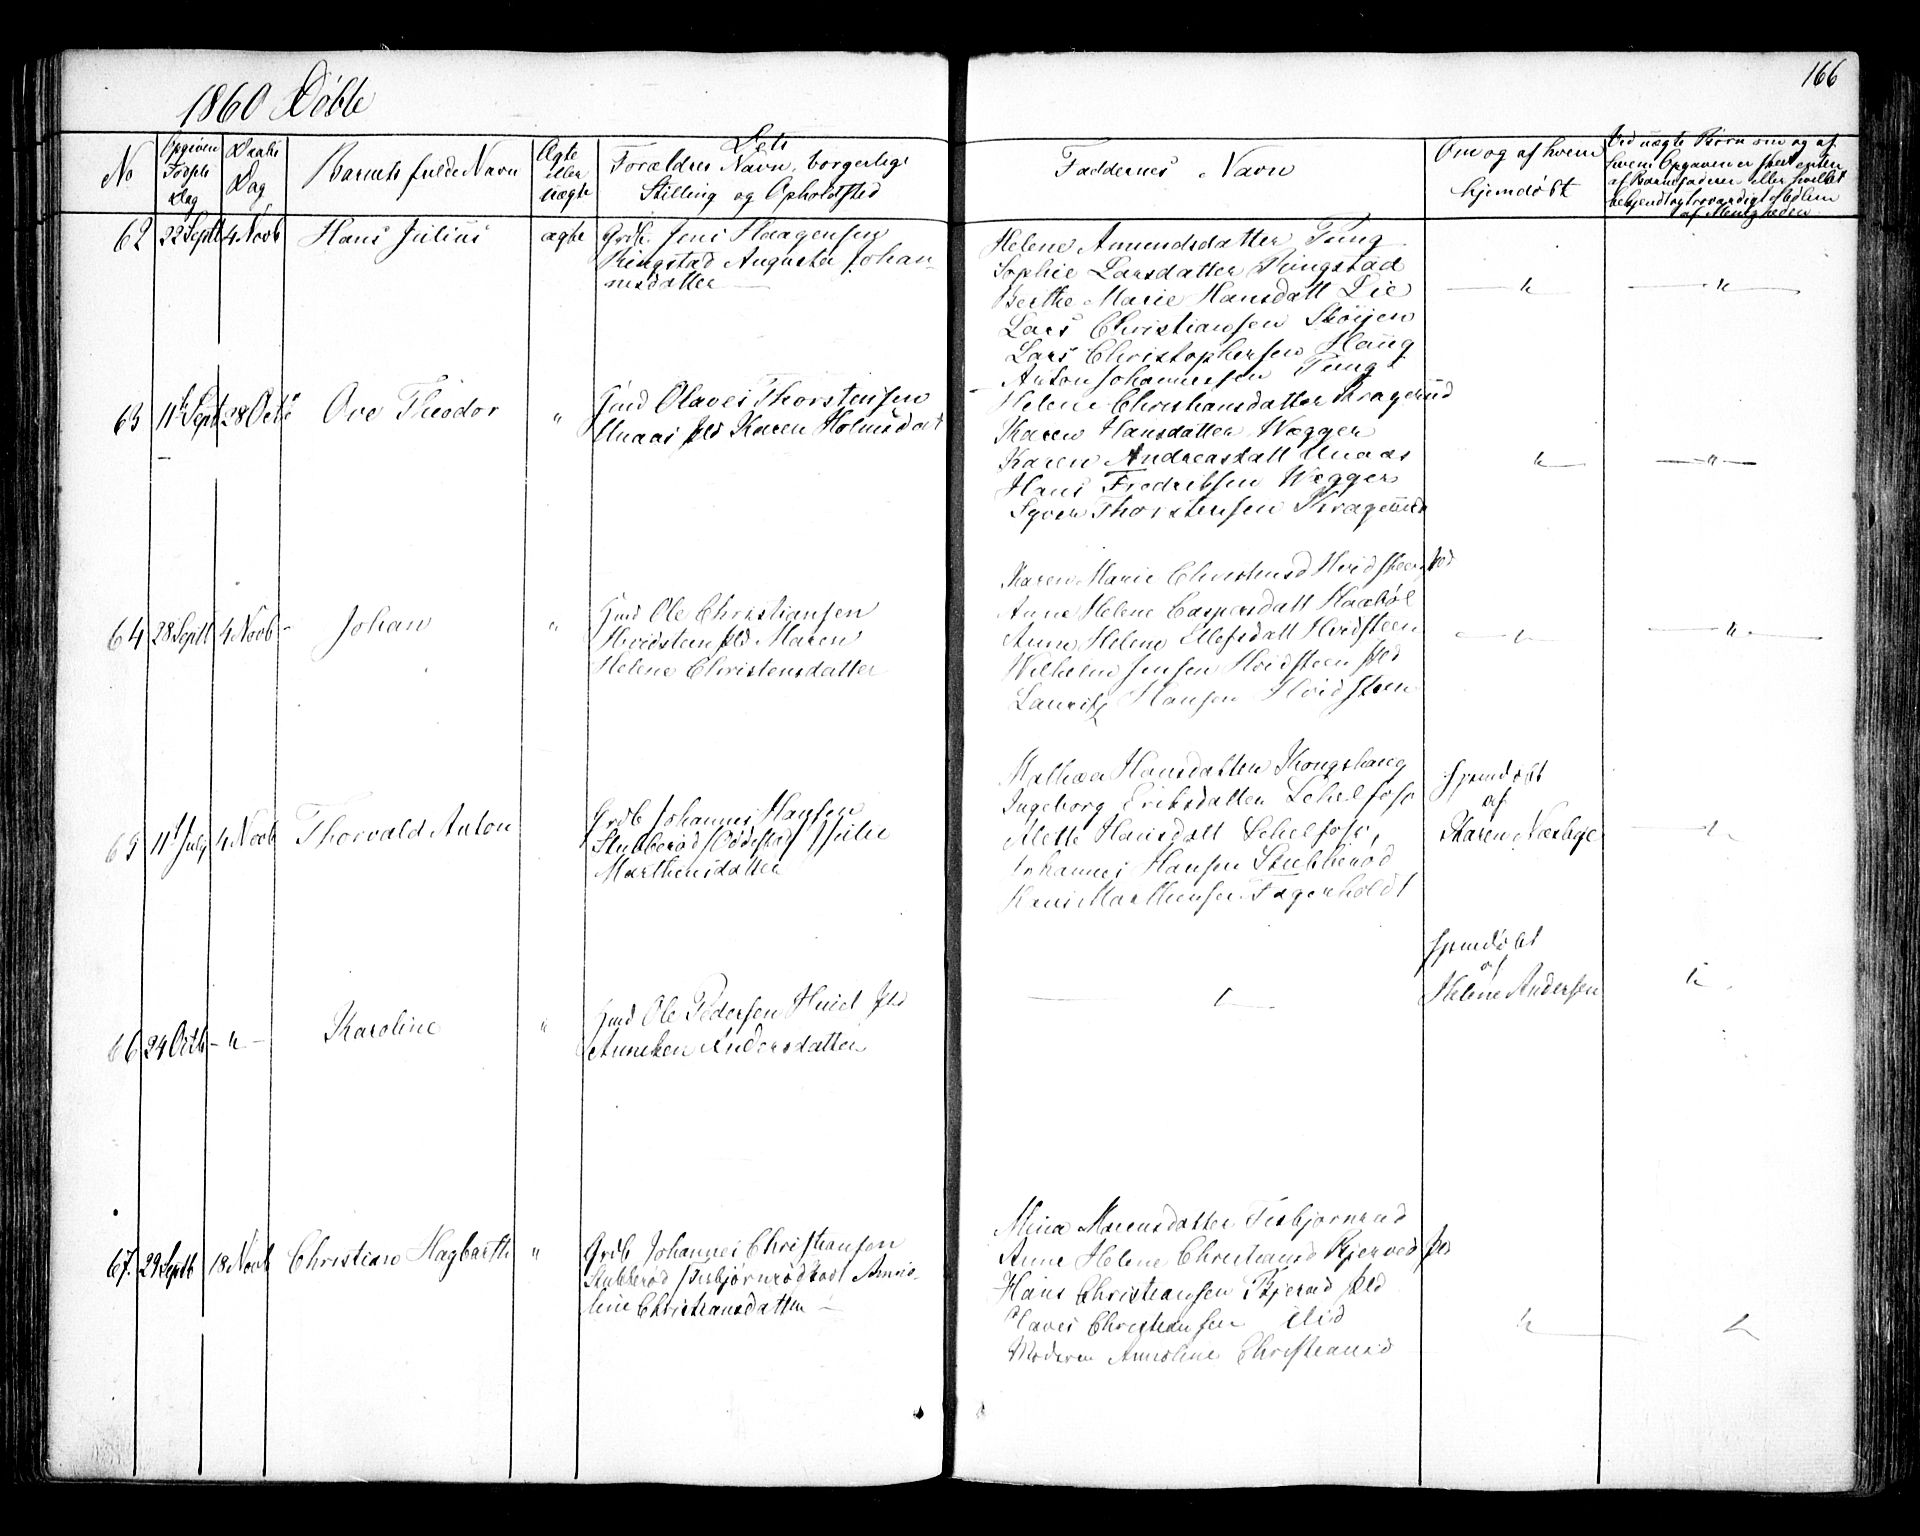 166
1860 Döbte
No
Opgiven Födsels Dag
Daabs Dag
Barnets fulde Navn
Ægte eller uægte
Dets Forældres Navn, borgerlige Stilling og Opholdssted
Faddernes Navn
Om og af hvem hjemdöbt
Ved uægte Börn om og af hvem Opgaven er skeet enten af Barnefaderen eller hvilket
62 22 Septb 4 Novb Hans Julius ægte
Grdb. Jens Haagensen
Ringstad Augusta Johan-
nesdatter
Helene Amundsdatter Tung
Sophie Larsdatter Ringstad
Berthe Marie Hansdatt Lie
Lars Christiansen Sköijen
Lars Christophersen Haug
Anton Johannessen Tung
63 11te Sept 28 Octb Ove Theodor "
Hmd Olaves Thorstensen
Unaas pld Karen Holmsdat
Helene Christiansdatter Kragerud
Karen Hansdatter Wegger
Karen Andreasdatt Unaas
Hans Fredriksen Wegger
Syver Thorstensen Kragerud
64 28 Septb 4 Novb Johan "
Hmd Ole Christiansen
Hvidsteen pld Maren
Helene Christensdatter
Karen Marie Christensd Hvidsteen pld
Anne Helene Caspersdatt
Anne Helene Ellefsdatt Hvidsteen
Wilhelm Jensen Hvidsteen pld
Lauritz Hansen Hvidsteen
65 11te July 4 Novb Thorvald Anton "
Grdb Johannes Hansen
Stubberöd Julie
Marthensdatter
Mathea Hansdatter Kongshaug
Ingeborg Eriksdatter
Mette Hansdatt
Johannes Hansen Stubberöd
Hans Marthensen Fagerholdt
Hjemdöbt
af
Karen Næsbye
66 24 Octb - " - Karoline "
Hmd Ole Pedersen pld
Anneken Andersdatter
Hjemdöbt
af
Helene Andersen
67. 29 Septb 18 Novb Christian Hagbarth "
Grdb Johannes Christiansen
Stubberöd
Christiansdatter
Mina Marensdatter Tisbjornrud
Anne Helene Christiansd Bjerad pld
Hans Christiansen Bjerad pld
Olaves Christiansen ibid
Moderen Anneoline Christiansd